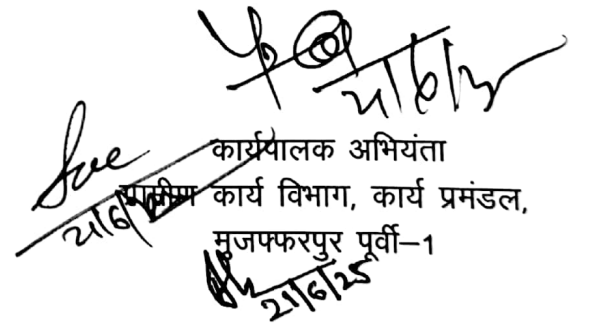 21/6/25
कार्यपालक अभियंता
21/6/25
ग्रामीण कार्य विभाग, कार्य प्रमंडल,
मुजफ्फरपुर पूर्वी–1
21/6/25